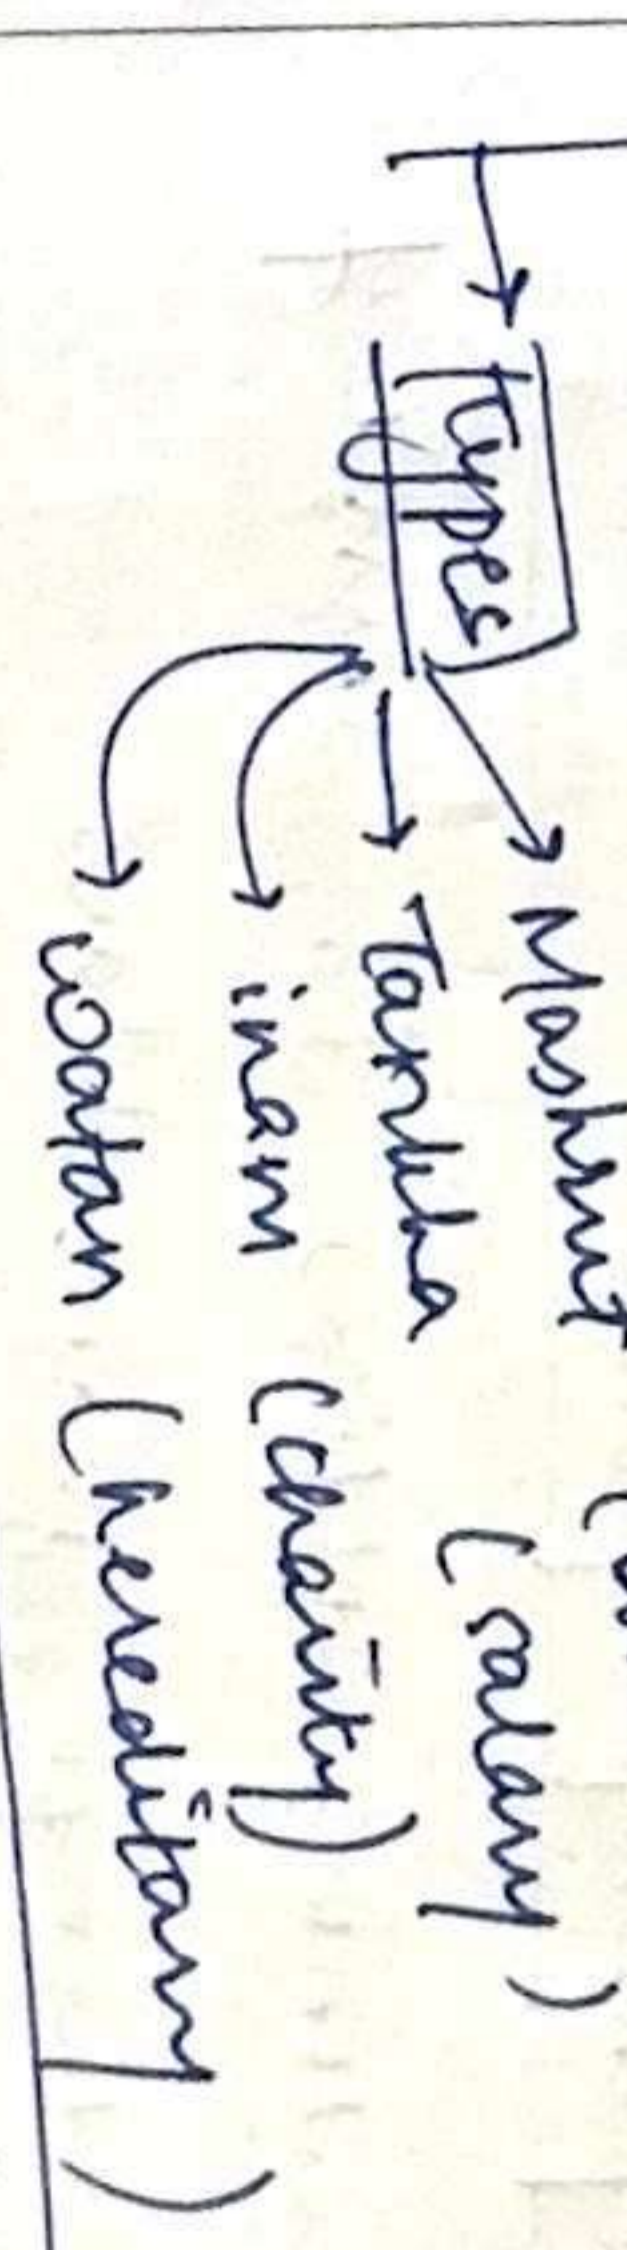 Types
Mashrut (
Tankha (salary)
inam (charity)
watan (hereditary)